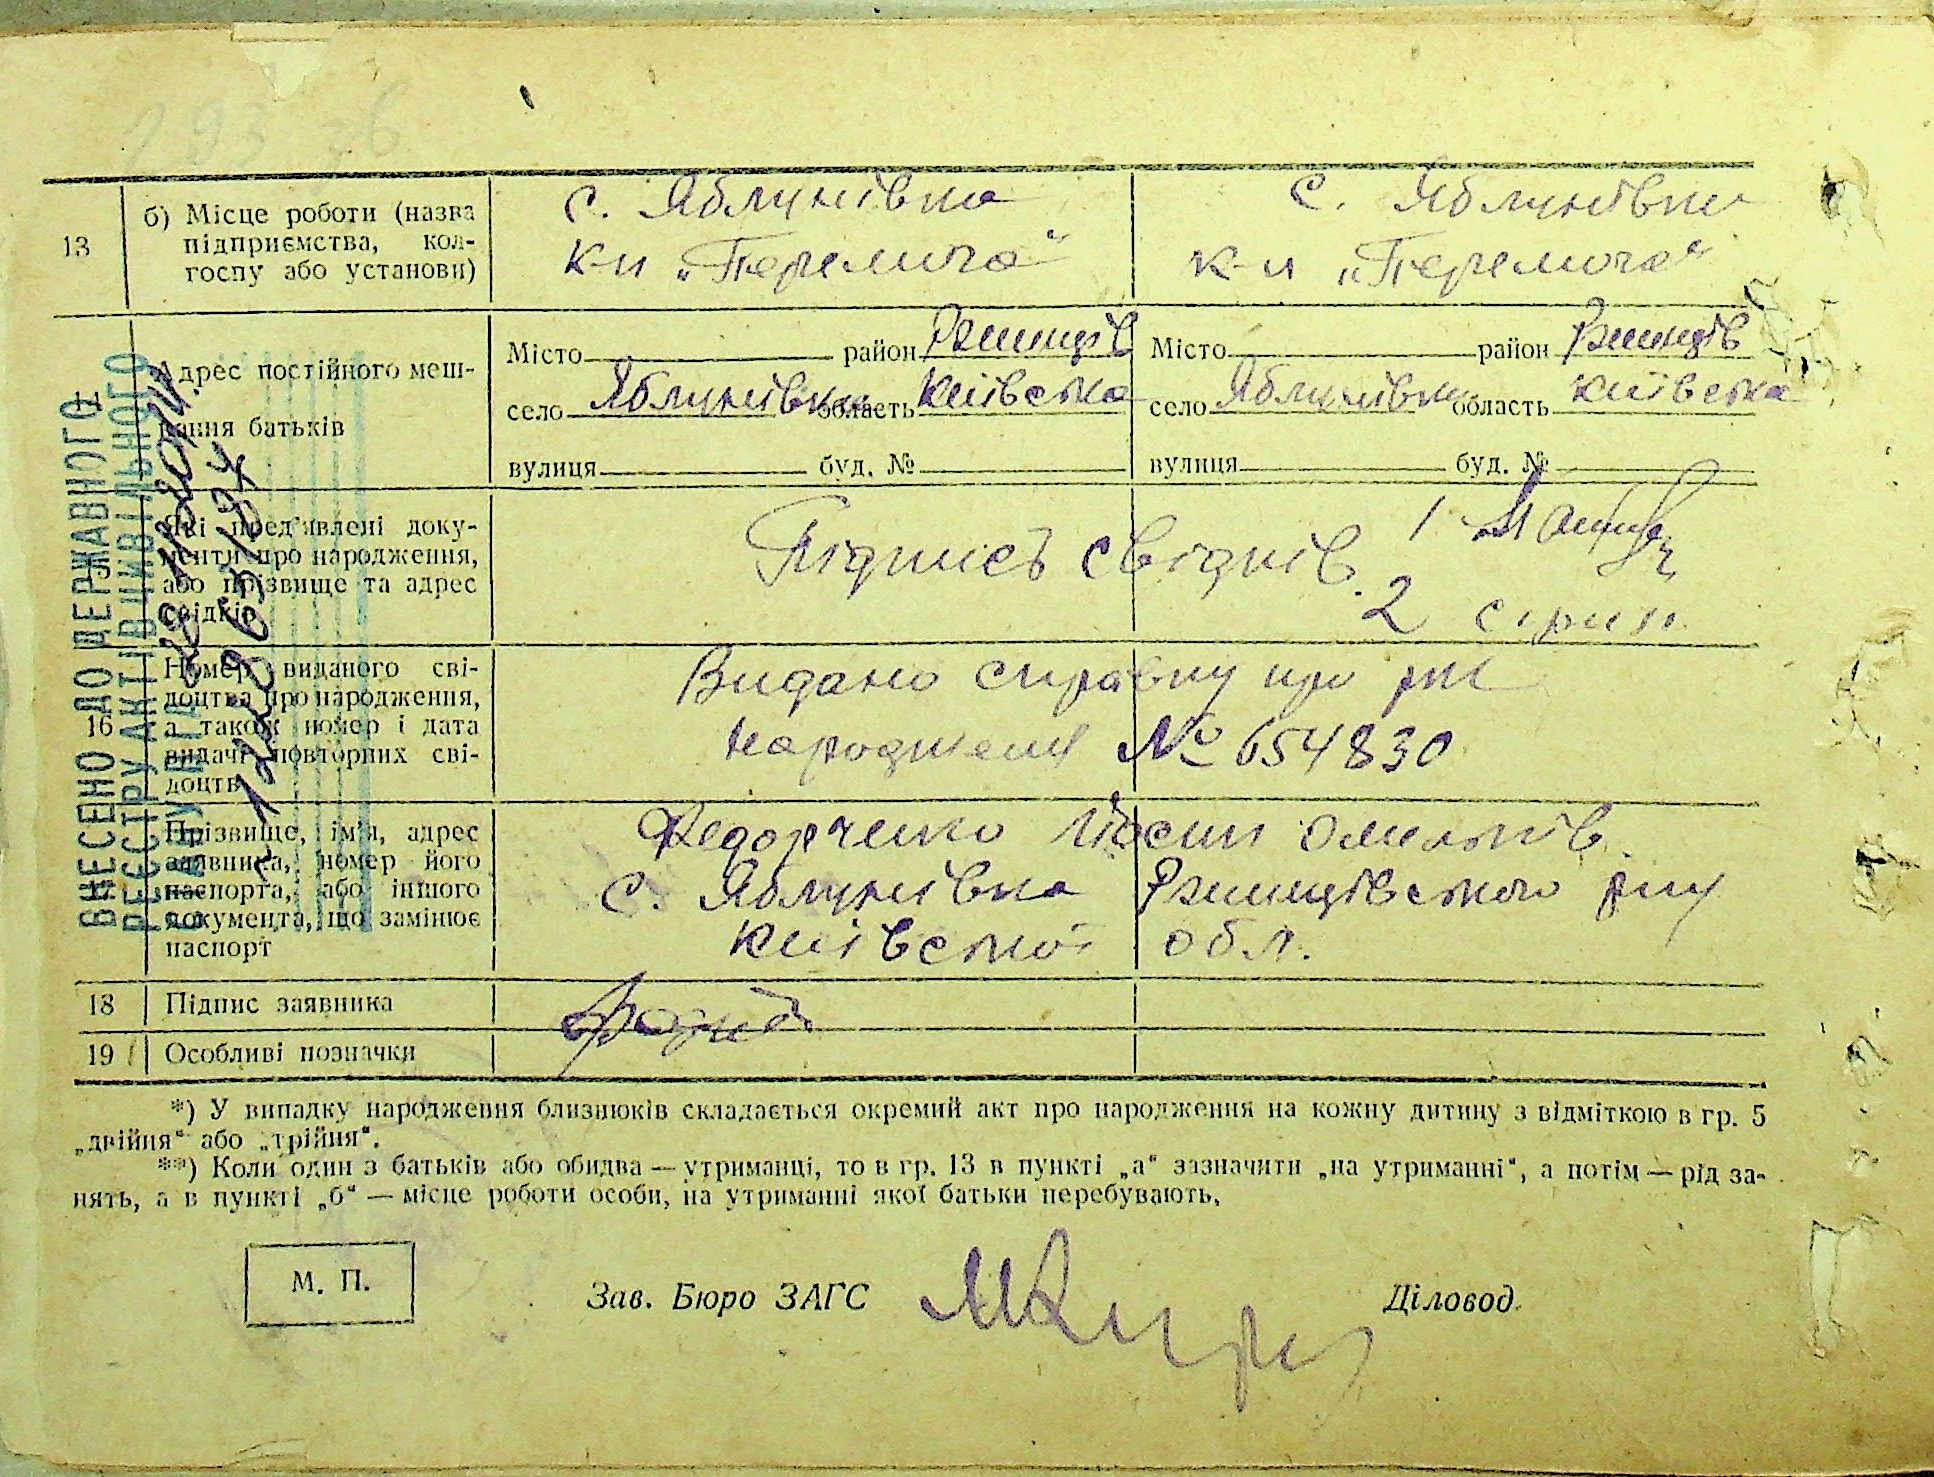 13
б) Місце роботи (назва
підприємства, кол-
госпу або установи)
с. Яблунівка
к-п „Перемога“
с. Яблунівка
к-п „Перемога“
Адрес постійного меш-
кання батьків
Місто район Ржищів
село Яблунівка область Київська
вулиця буд. №
Місто район Ржищів
село Яблунівка область Київська
вулиця буд. №
Які пред'явлені доку-
менти про народження,
або прізвище та адрес
свідків
Підпись свідків 1
2
16
Номер виданого сві-
доцтва про народження,
а також номер і дата
видачі повторних сві-
доцтв
Видано справку про
народження № 654830
17
Прізвище, ім'я, адрес
заявника, номер його
паспорта, або іншого
документа, що замінює
паспорт
Федорченко Йосип Омельків
с. Яблунівка Ржищівського р-ну
Київської обл.
18
Підпис заявника
19
Особливі позначки
ВНЕСЕНО ДО ДЕРЖАВНОГО
РЕЄСТРУ АКТІВ ЦИВІЛЬНОГО
*) У випадку народження близнюків складається окремий акт про народження на кожну дитину з відміткою в гр. 5
„двійня“ або „трійня“.
**) Коли один з батьків або обидва — утриманці, то в гр. 13 в пункті „а“ зазначити „на утриманні“, а потім — рід за-
нять, а в пункті „б“ — місце роботи особи, на утриманні якої батьки перебувають.
М. П.
Зав. Бюро ЗАГС
Діловод